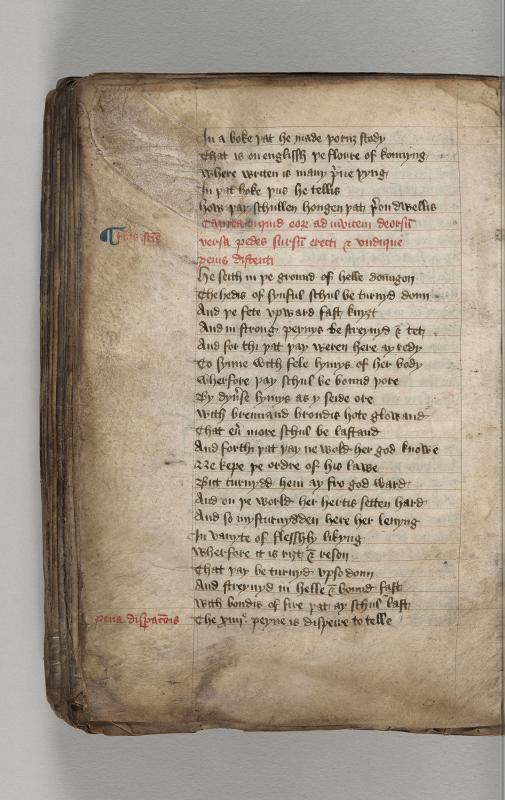 In a boke þat he made þoruȝ stody
That is on englissh þe floure of konnyng
Where writen is many p'ue þyng
In þat boke þus he tellis
How þay schullen hongen þat þ'on dwellis
Capita eoꝝ ad inuicem deorsū
versa pedes sursū erecti ⁊ vndique
penis distenti
He seith in þe ground of helle doungon
The hedis of synful schul be turnyd doun
And þe fete vpward fast knyȝt
And in strong peynys be streynyd ⁊
And for thi þat þay weren here ay redy
To synne with fele lymys of her body
Wherfore þay schul be bound þore
By dyu'se lymys as y seide ore
With brennand brondis hote glowand
That eu' more schul be lastand
And forthi þat þay ne wold her god knowe
Ne kepe þe ordre of his lawe
But turnydd hem ay fro god ward
And on þe world her hertis setten hard
And so here her leuyng
In vanyte of flesshly likyng
Wherfore it is riȝt ⁊ reson
That þay be turnyd vpsodoun
And streynyd in helle ⁊ bound fast
With bondis of fire þat ay schul last
pena disꝑac̄ois
The xiiij. peyne is dispeire to telle